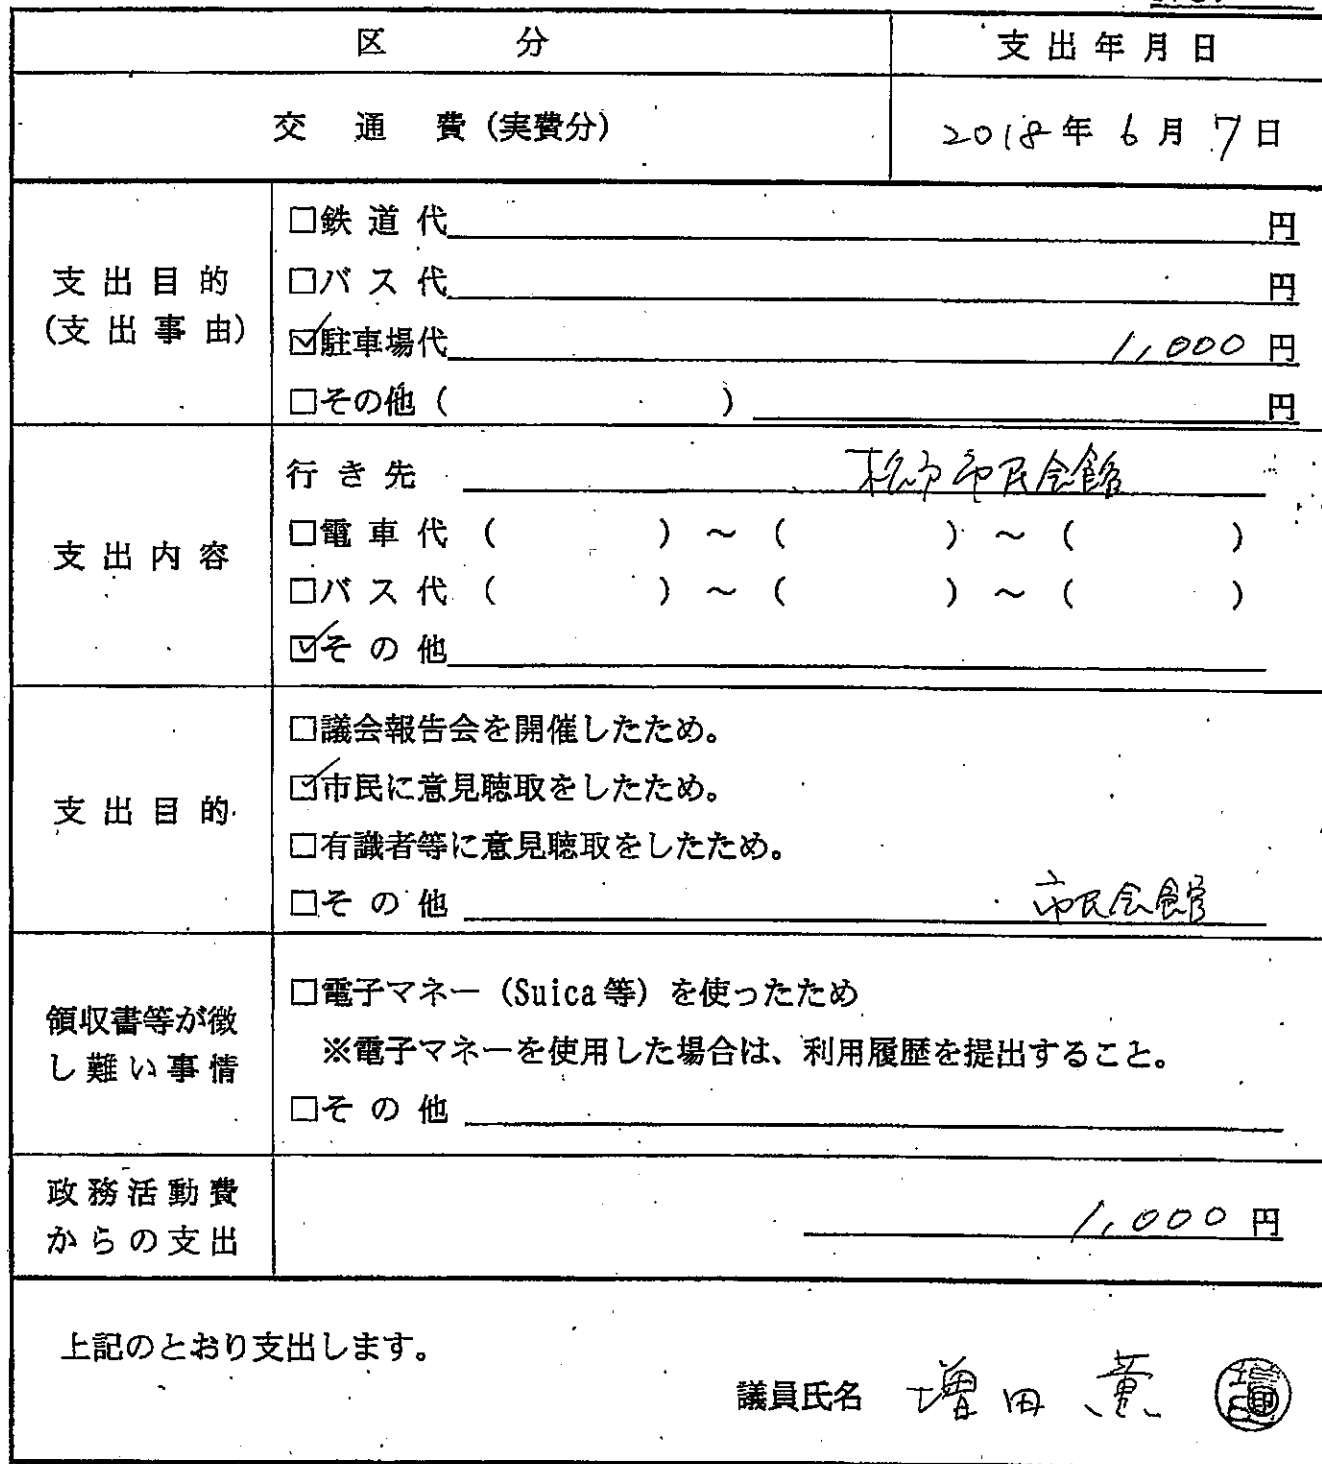 区 分
支出年月日
交 通 費 (実費分)
2018年 6月 7日
支出目的
(支出事由)
□鉄道代 円
□バス代 円
☑駐車場代 1,000円
□その他 ( ) 円
支出内容
行き先 市民会館
□電車代 ( ) ～ ( ) ～ ( )
□バス代 ( ) ～ ( ) ～ ( )
☑その他
支出目的
□議会報告会を開催したため。
☑市民に意見聴取をしたため。
□有識者等に意見聴取をしたため。
□その他 市民会館
領収書等が徴
し難い事情
□電子マネー（Suica等）を使ったため
※電子マネーを使用した場合は、利用履歴を提出すること。
□その他
政務活動費
からの支出
1,000円
上記のとおり支出します。
議員氏名 増田 薫